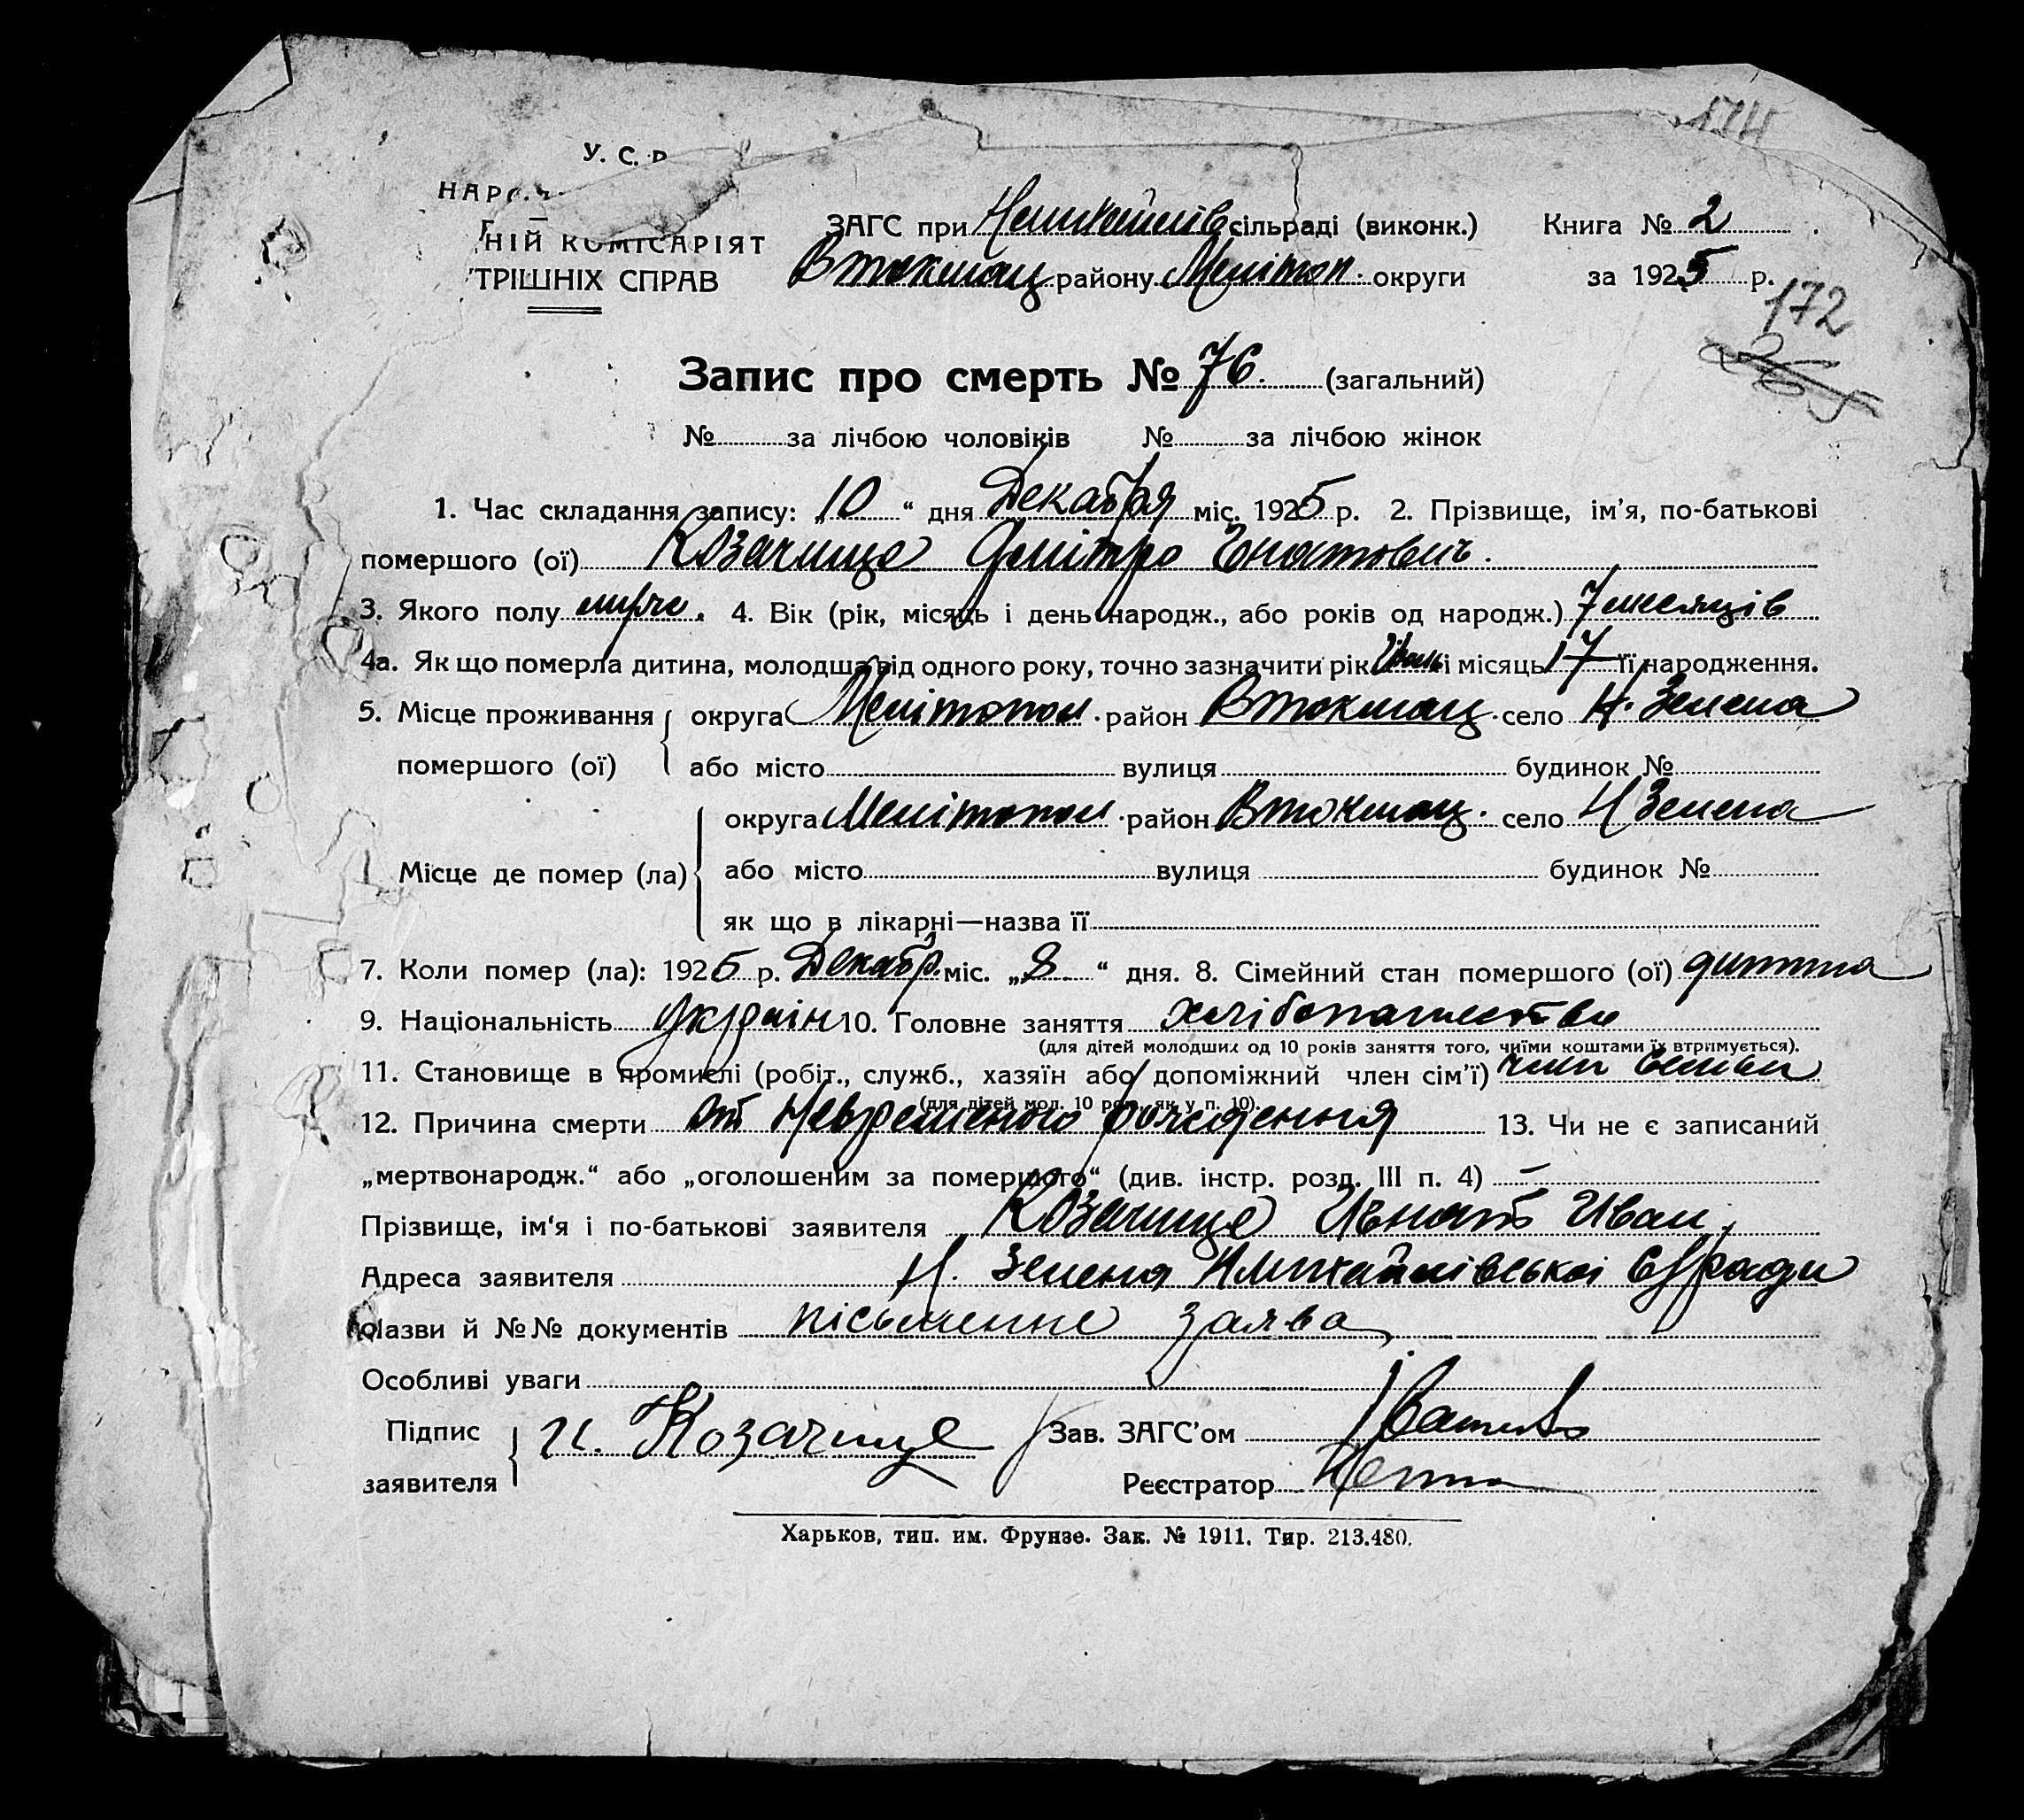 174
У. С. Р
НАРО
НІЙ КОМІСАРІЯТ
ТРІШНІХ СПРАВ
ЗАГС при сільраді (виконк.) Книга № 2
Втокмац району Мелітоп. округи за 1925 р.
172
Запис про смерть № 76. (загальний)
№ за лічбою чоловіків № за лічбою жінок
1. Час складання запису: „10“ дня Декабря міс. 1925 р. 2. Прізвище, ім'я, по-батькові
помершого (ої) Козачище Дмітро Ігнатович.
3. Якого полу 4. Вік (рік, місяць і день народж., або років од народж.) 7 месяців
4а. Як що померла дитина, молодша від одного року, точно зазначити рік і місяць 17 її народження.
5. Місце проживання округа Мелітопол. район Втокмац. село Н. Зелена
помершого (ої) або місто вулиця будинок №
округа Мелітопол. район Втокмац. село Н Зелена
Місце де помер (ла) або місто вулиця будинок №
як що в лікарні—назва її
7. Коли помер (ла): 1925 р. Декабр. міс. „8“ дня. 8. Сімейний стан помершого (ої) дитина
9. Національність Україн 10. Головне заняття хлібопашество
(для дітей молодших од 10 років заняття того, чиїми коштами їх втримується).
11. Становище в промислі (робіт., служб., хазяїн або допоміжний член сім'ї) член семьи
(для дітей мол. 10 рок. як у п. 10).
12. Причина смерти от Невременого рождення 13. Чи не є записаний
„мертвонародж.“ або „оголошеним за помершого“ (див. інстр. розд. III п. 4) –
Прізвище, ім'я і по-батькові заявителя Козачище Игнат Иван.
Адреса заявителя Н. Зелена
Назви й №№ документів пісьменне заява
Особливі уваги
Підпис И. Козачище Зав. ЗАГС'ом
заявителя Реєстратор
Харьков, тип. им. Фрунзе. Зак. № 1911. Тир. 213.480.